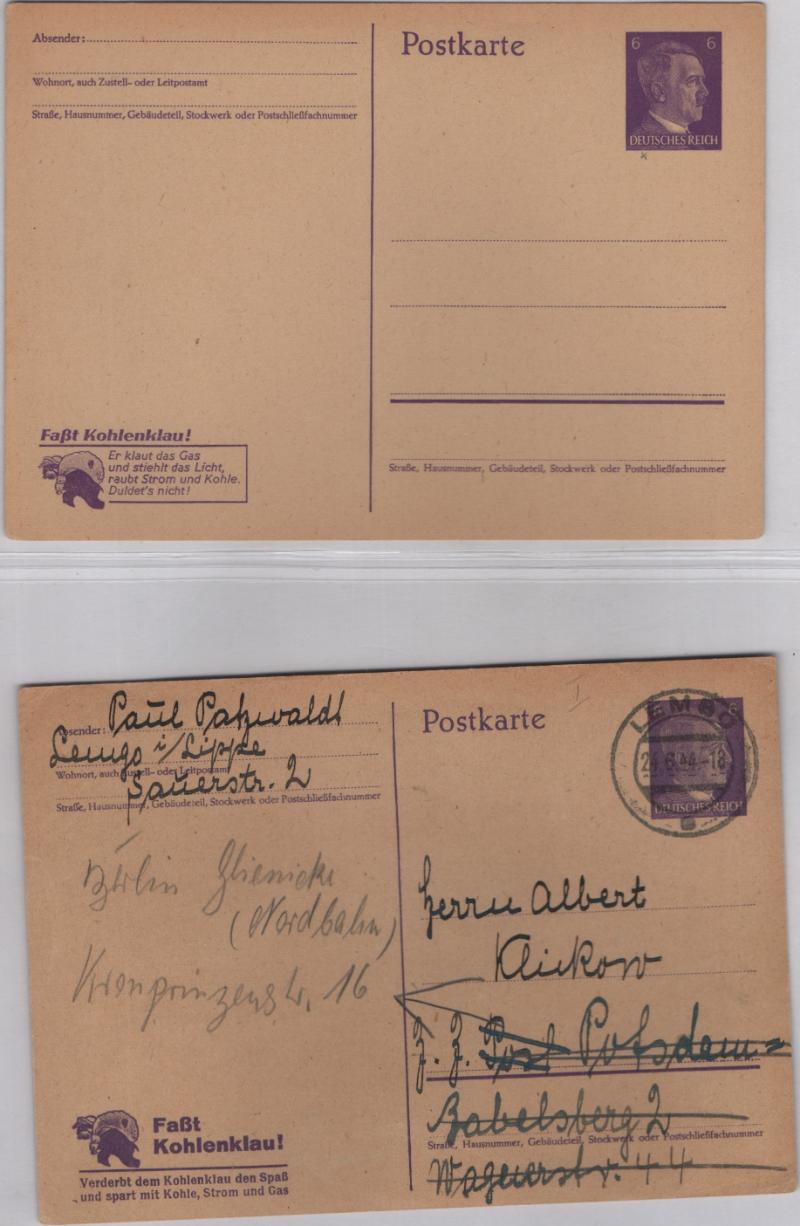 Absender:
Wohnort, auch Zustell- oder Leitpostamt
Straße, Hausnummer, Gebäudeteil, Stockwerk oder Postschließfachnummer
Postkarte
6 6
DEUTSCHES REICH
Straße, Hausnummer, Gebäudeteil, Stockwerk oder Postschließfachnummer
Faßt Kohlenklau!
Er klaut das Gas
und stiehlt das Licht,
raubt Strom und Kohle.
Duldet's nicht!
Absender: Paul Patzwaldt
Lemgo i/Lippe
Wohnort, auch Zustell- oder Leitpostamt
Sauerstr. 2
Straße, Hausnummer, Gebäudeteil, Stockwerk oder Postschließfachnummer
Berlin Glienicke
(Nordbahn)
Kronprinzenstr. 16
Postkarte
LEMGO
24.6.44.-18
6
DEUTSCHES REICH
Herrn Albert
Klickow
Z. Z. Post Potsdam=
Babelsberg 2
Straße, Hausnummer, Gebäudeteil, Stockwerk oder Postschließfachnummer
Wagnerstr. 44
Faßt
Kohlenklau!
Verderbt dem Kohlenklau den Spaß
und spart mit Kohle, Strom und Gas